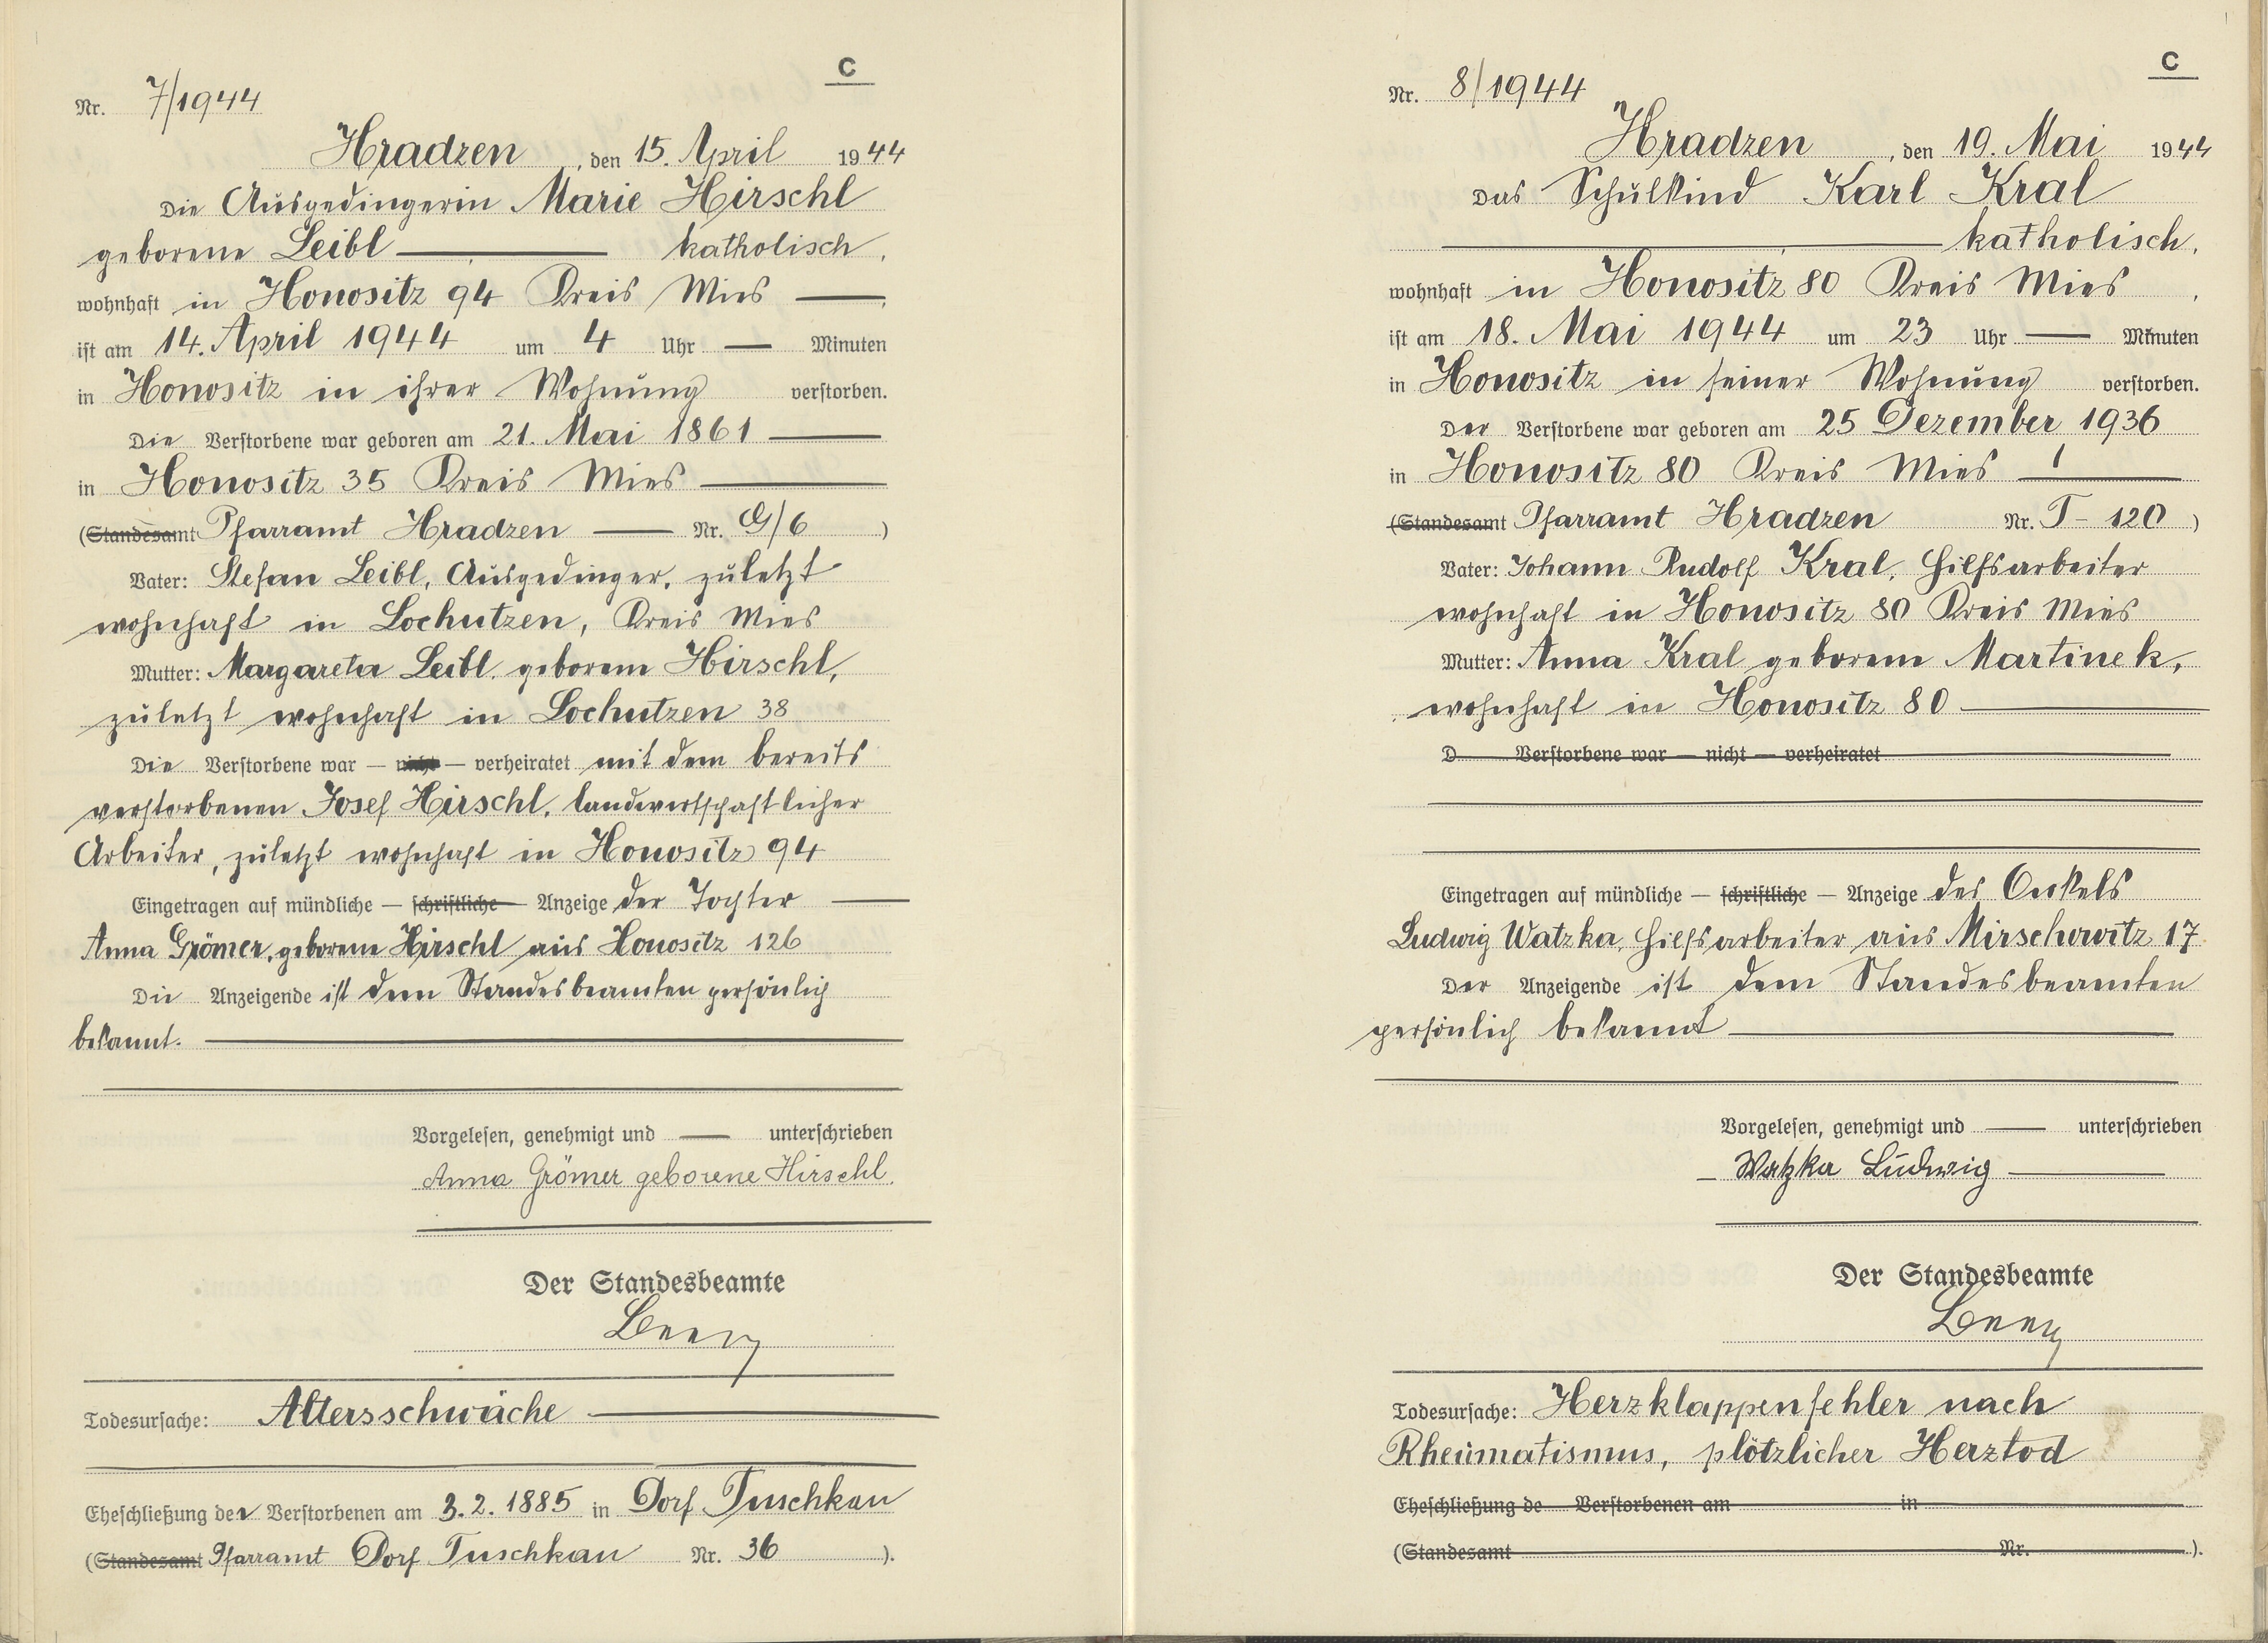 C
Nr. 7/1944
Hradzen, den 15. April 1944
Die Ausgedingerin Marie Hirschl
geborene Leibl — katholisch,
wohnhaft in Honositz 94 Kreis Mies —,
ist am 14. April 1944 um 4 Uhr — Minuten
in Honositz in ihrer Wohnung verstorben.
Die Verstorbene war geboren am 21. Mai 1861 —
in Honositz 35 Kreis Mies —
(Standesamt Pfarramt Hradzen — Nr. G/6)
Vater: Stefan Leibl, Ausgedinger, zuletzt
wohnhaft in Lochutzen, Kreis Mies
Mutter: Margareta Leibl, geborene Hirschl,
zuletzt wohnhaft in Lochutzen 38
Die Verstorbene war — nicht — verheiratet mit dem bereits
verstorbenen Josef Hirschl, landwirtschaftlicher
Arbeiter, zuletzt wohnhaft in Honositz 94
Eingetragen auf mündliche — schriftliche — Anzeige der Tochter —
Anna Grömer, geborene Hirschl aus Honositz 126
Die Anzeigende ist dem Standesbeamten persönlich
bekannt. —
Vorgelesen, genehmigt und — unterschrieben
Anna Grömer geborene Hirschl.
Der Standesbeamte
Todesursache: Altersschwäche —
Eheschließung der Verstorbenen am 3.2.1885 in Dorf Tuschkau
(Standesamt Pfarramt Dorf Tuschkau Nr. 36).
C
Nr. 8/1944
Hradzen, den 19. Mai 1944
Das Schulkind Karl Kral
— katholisch,
wohnhaft in Honositz 80 Kreis Mies,
ist am 18. Mai 1944 um 23 Uhr — Minuten
in Honositz in seiner Wohnung verstorben.
Der Verstorbene war geboren am 25 Dezember 1936
in Honositz 80 Kreis Mies —
(Standesamt Pfarramt Hradzen Nr. T-120)
Vater: Johann Rudolf Kral, Hilfsarbeiter
wohnhaft in Honositz 80 Kreis Mies
Mutter: Anna Kral geborene Martinek,
wohnhaft in Honositz 80 —
D Verstorbene war — nicht — verheiratet
Eingetragen auf mündliche — schriftliche — Anzeige des Onkels
Ludwig Watzka, Hilfsarbeiter aus Mirschowitz 17
Der Anzeigende ist dem Standesbeamten
persönlich bekannt —
Vorgelesen, genehmigt und — unterschrieben
Watzka Ludwig —
Der Standesbeamte
Todesursache: Herzklappenfehler nach
Rheumatismus, plötzlicher Herztod
Eheschließung de Verstorbenen am in
(Standesamt Nr. ).